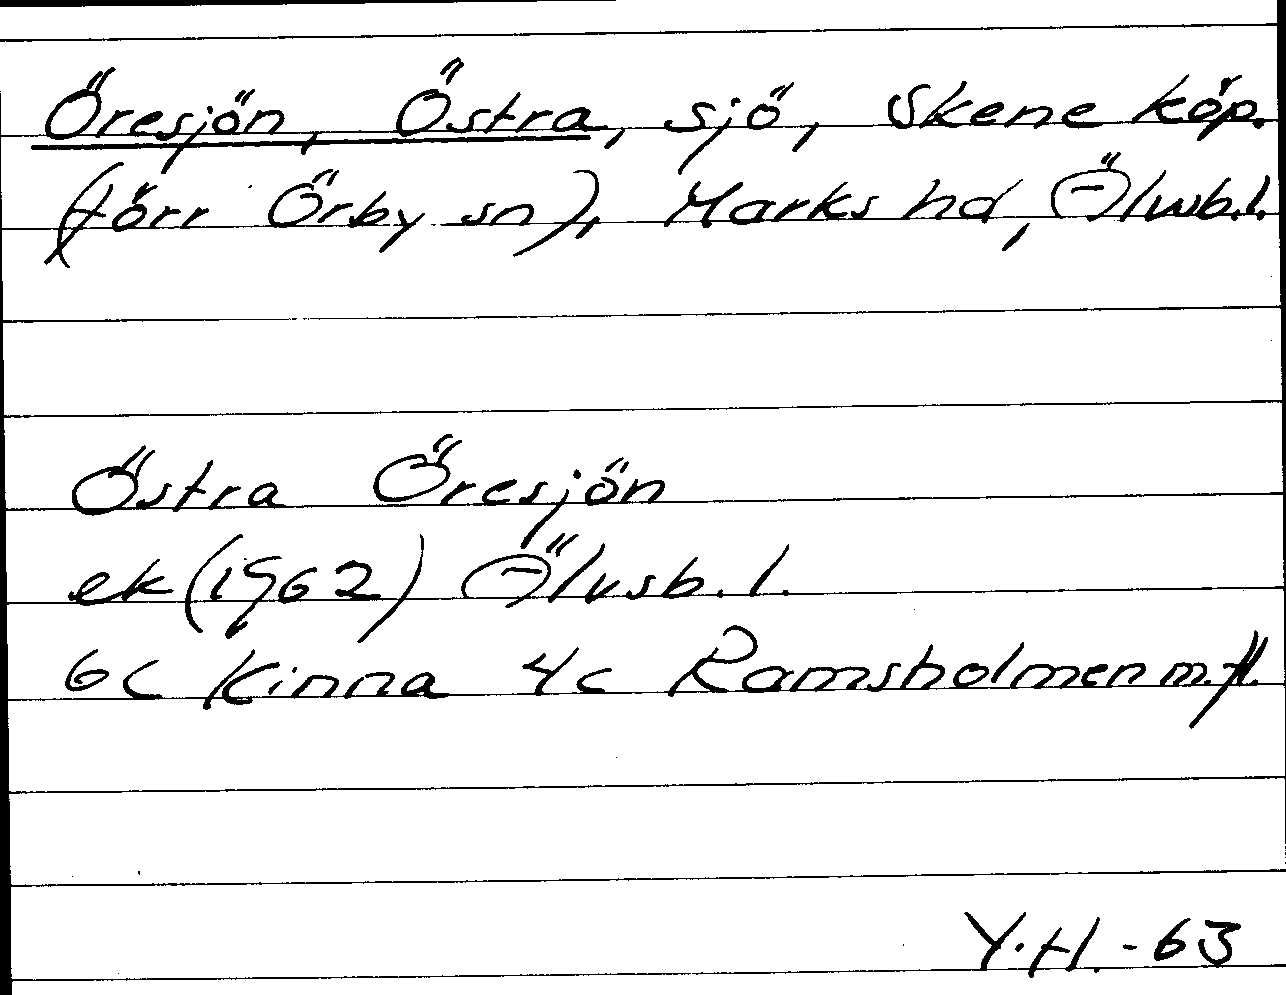 Öresjön, Östra, sjö, Skene köp.
(förr Örby sn), Marks hd, Älvsb.l.
Östra Öresjön
ek (1962) Älvsb.l.
6c Kinna 4c Ramsholmen m.fl.
Y.H.-63